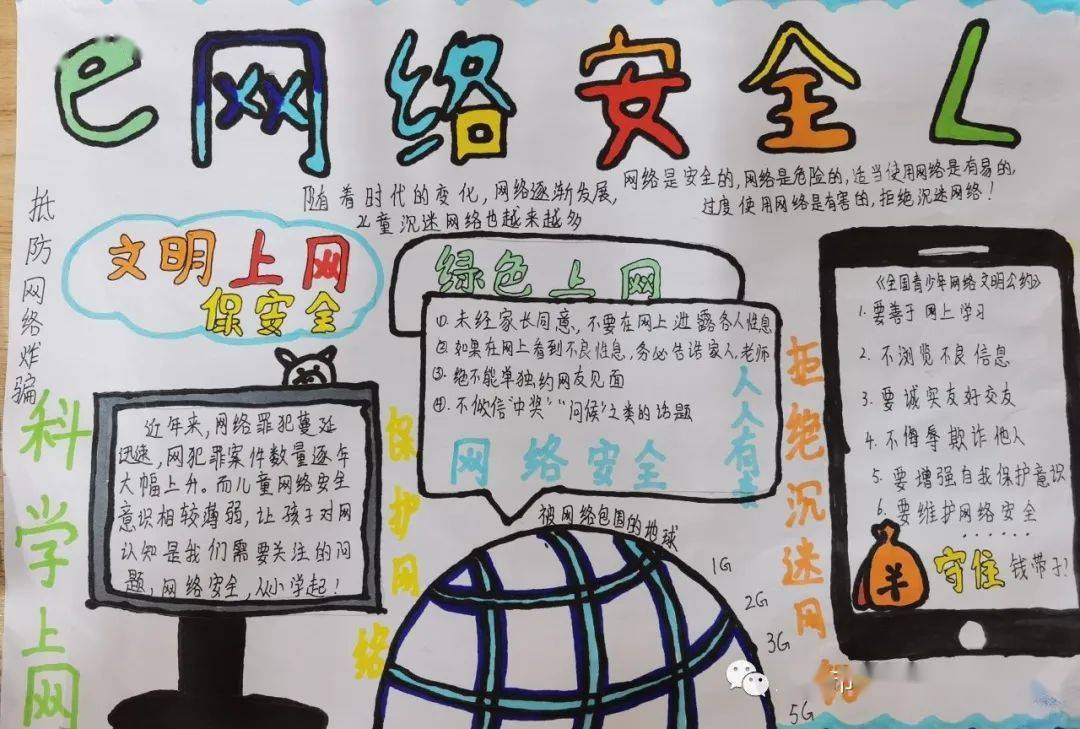 e网络安全
抵防网络炸骗
随着时代的变化,网络逐渐发展,
儿童沉迷网络也越来越多
网络是安全的,网络是危险的,适当使用网络是有易的,
过度使用网络是有害的,拒绝沉迷网络!
文明上网
保安全
绿色上网
①.未经家长同意,不要在网上泄露各人性息
②.如果在网上看到不良性息,务必告诰家人,老师
③.绝不能单独约网友见面
④.不做信"中奖""问候"之类的话题
网络安全
人人有责
科学上网
近年来,网络罪犯蔓延
迅速,网犯罪案件数量逐年
大幅上升。而儿童网络安全
意识相较薄弱,让孩子对网
认知是我们需要关注的问
题,网络安全,从小学起!
保护网络
被网络包围的地球
1G
2G
3G
5G
拒绝沉迷网
《全国青少年网络文明公约》
1.要善于网上学习
2.不浏览不良信息
3.要诚实友好交友
4.不侮辱欺诈他人
5.要增强自我保护意识
6.要维护网络安全
......
守住钱带子!